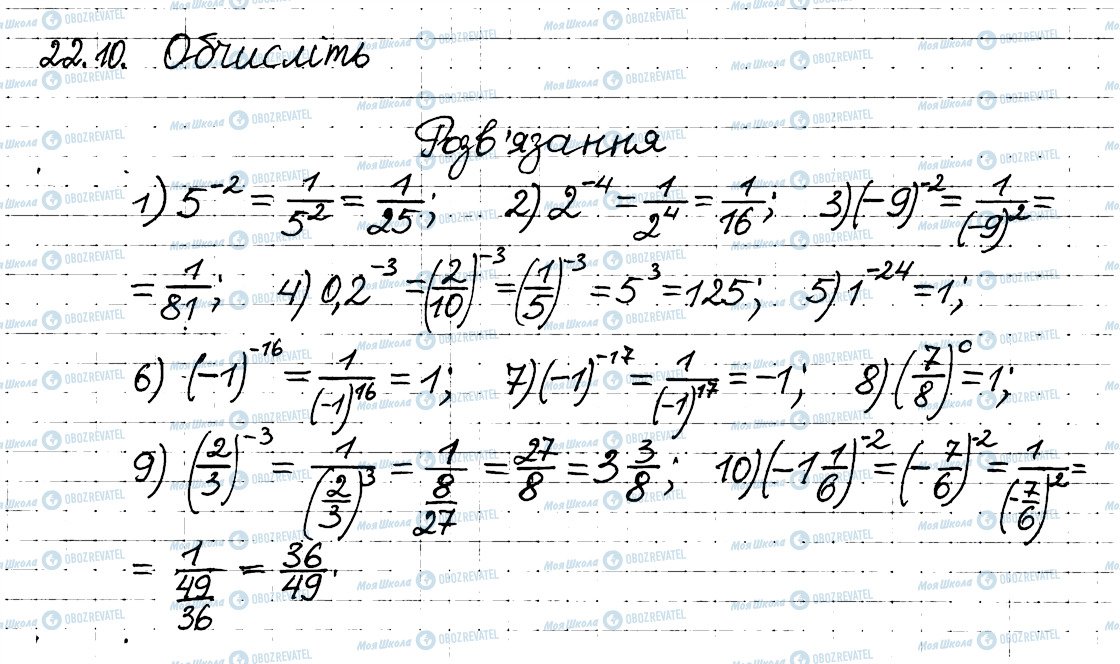 22.10. Обчисліть
Розв'язання
1) 5^{-2} = \frac{1}{5^2} = \frac{1}{25}; 2) 2^{-4} = \frac{1}{2^4} = \frac{1}{16}; 3) (-9)^{-2} = \frac{1}{(-9)^2} =
= \frac{1}{81}; 4) 0,2^{-3} = (\frac{2}{10})^{-3} = (\frac{1}{5})^{-3} = 5^3 = 125; 5) 1^{-24} = 1;
6) (-1)^{-16} = \frac{1}{(-1)^{16}} = 1; 7) (-1)^{-17} = \frac{1}{(-1)^{17}} = -1; 8) (\frac{7}{8})^0 = 1;
9) (\frac{2}{3})^{-3} = \frac{1}{(\frac{2}{3})^3} = \frac{1}{\frac{8}{27}} = \frac{27}{8} = 3\frac{3}{8}; 10) (-1\frac{1}{6})^{-2} = (-\frac{7}{6})^{-2} = \frac{1}{(-\frac{7}{6})^2} =
= \frac{1}{\frac{49}{36}} = \frac{36}{49}.
Моя Школа OBOZREVATEL